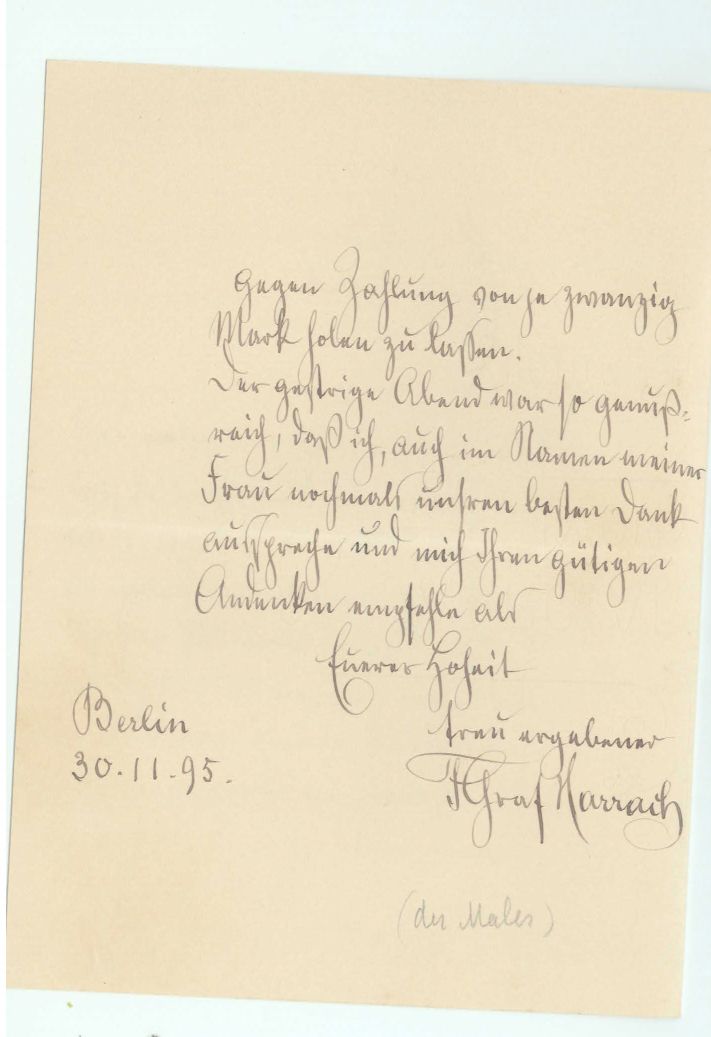 gegen Zahlung von je zwanzig
Mark holen zu lassen.
Der gestrige Abend war so genuß-
reich, daß ich, auch im Namen meiner
Frau nochmals unsren besten Dank
ausspreche und mich Ihren gütigen
Andenken empfehle als
Euerer Hoheit
treu ergebener
Berlin
30.11.95.
FGraf Harrach
(der Maler)